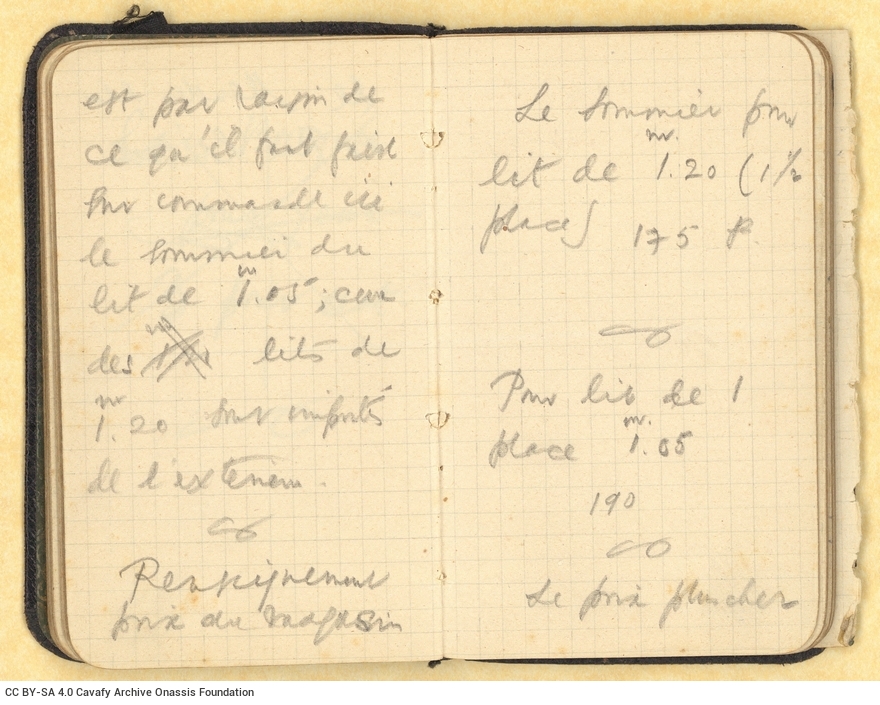 est par raison de
ce qu'il faut faire
sur commande ici
le sommier du
lit de 1.05 ; ceux
des lits de
m
1.20 sont importés
de l'exterieur.
Renseignement
prix du magasin
Le sommier pour
m.
lit de 1.20 (1 1/2
place) 175 P.
Pour lit de 1
m.
place 1.05
190
Le prix plus cher
CC BY-SA 4.0 Cavafy Archive Onassis Foundation